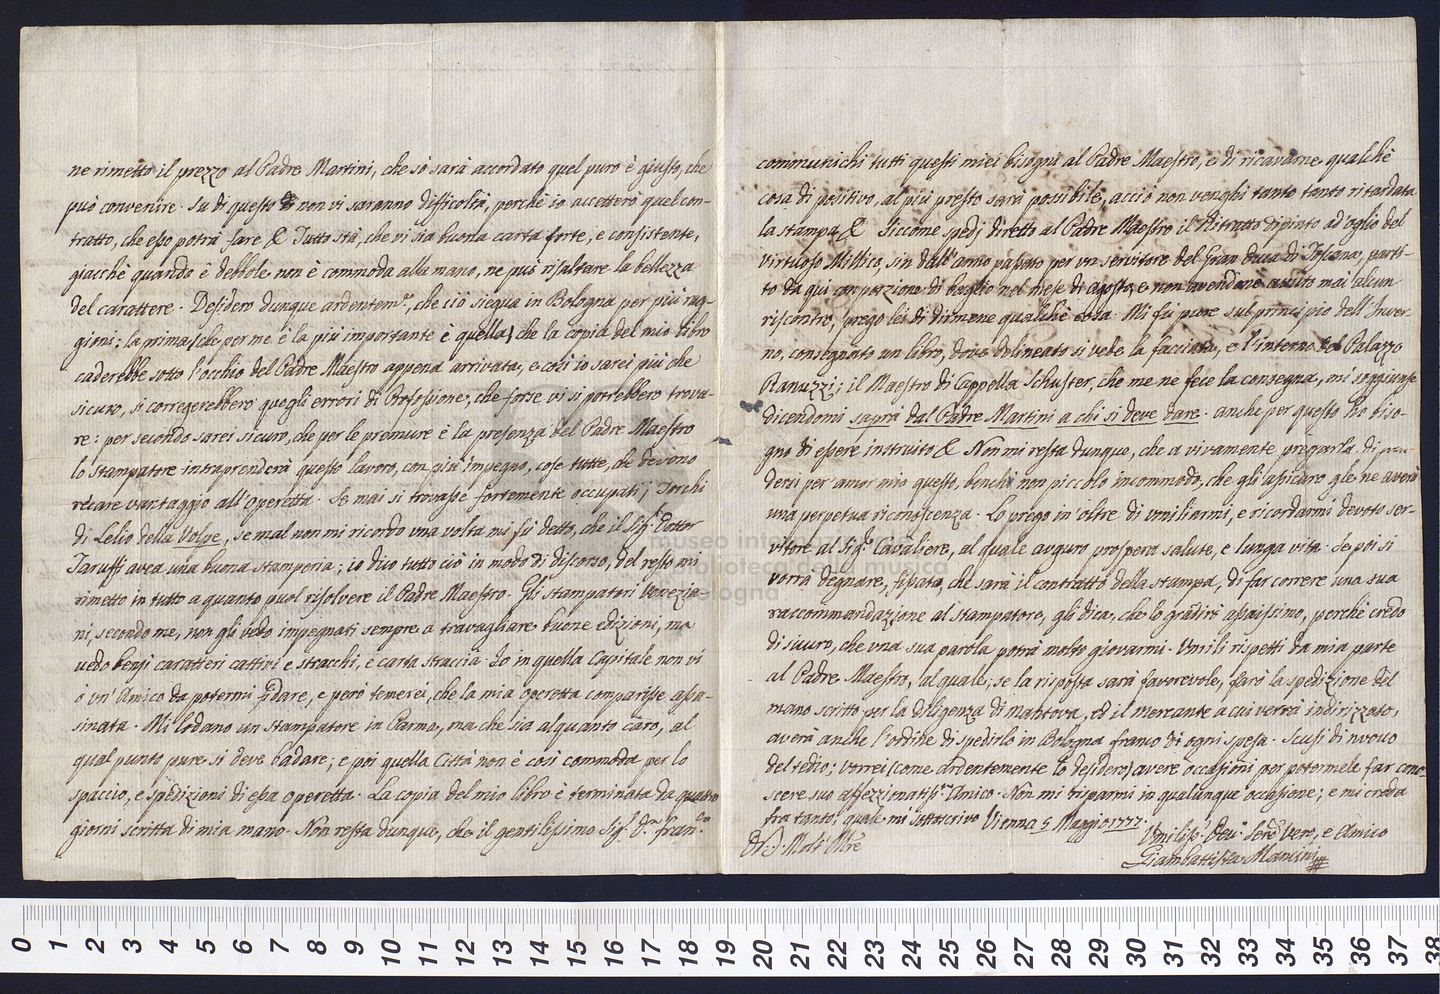 ne rimetto il prezzo al Padre Martini, che si sarà accordato quel puro è giusto, che
può convenire. Su di questo non vi saranno difficoltà, perchè io accetterò quel con-
tratto, che esso potrà fare, & Tutto stà, che vi sia buona carta forte, e consistente,
giacchè quando è debbole non è commoda alla mano, ne può risaltare la bellezza
del carattere. Desidero dunque ardentem.te, che ciò siegua in Bologna per più rag-
gioni: la prima (che per me è la più importante è quella) che la copia del mio libro
caderebbe sotto l'occhio del Padre Maestro appena arrivata, e così io sarei più che
sicuro, si corregerebbero quegli errori di Professione, che forse vi si potrebbero trova-
re: per secondo sarei sicuro, che per le premure è la presenza del Padre Maestro
lo stampatore intraprenderà questo lavoro, con più impegno, cose tutte, che devono
recare vantaggio all'operetta. Se mai si trovasse fortemente occupati i Torchi
di Lelio della Volpe, se mal non mi ricordo una volta mi fù detto, che il Sig.r Dottor
Taruffi avea una buona stamperia; io dico tutto ciò in modo di discorso, del resto mi
rimetto in tutto a quanto puol risolvere il Padre Maestro. Gli stampatori Venezia-
ni secondo me, non gli vedo impegnati sempre a travagliare buone edizioni, ma
vedo bensi caratteri cattivi e stracchi, e carta straccia. Io in quella Capitale non vi
ò un' Amico da potermi fidare, e però temerei, che la mia operetta comparisse assa-
sinata. Mi lodano un stampatore in Parma, ma che sia alquanto caro, al
qual punto pure si deve badare; e poi quella Città non è così commoda per lo
spaccio, e spedizioni di essa operetta. La copia del mio libro è terminata da quatro
giorni scritta di mia mano. Non resta dunque, che il gentilissimo Sig.r D.n Fran.co
communichi tutti questi miei bisogni al Padre Maestro, e di ricavarne qualchè
cosa di positivo, al più presto sarà possibile, acciò non venghi tanto tanto ritardata
la stampa & Siccome spedj diretto al Padre Maestro il Ritratto dipinto ad oglio del
virtuoso Millico, sin dall'anno passato per un servitore del Gran Duca di Toscana, parti-
to da qui con porzione di baglio nel mese di agosto, e non avendone avuto mai alcun
riscontro, prego lei di dirmene qualchè cosa. Mi fù pure sul principio dell'Inver-
no, consegnato un libro, dove delineato si vede la facciata, e l'interno del Palazzo
Ranuzzi; il Maestro di Cappella Schuster, che me ne fece la consegna, mi soggiunse
dicendomi saprà dal Padre Martini a chi si deve dare: anche per questo hò biso-
gno di essere instruito & Non mi resta dunque, che a vivamente pregarla di pren-
dersi per amor mio questo, benchè non piccolo incommodo, che gli assicuro gle ne averò
una perpetua riconoscenza. Lo prego in oltre di umiliarmi, e ricordarmi devoto ser-
vitore al Sig.r Cavaliere, al quale auguro prospera salute, e lunga vita. Se poi si
vorrà degnare, fissato, che sarà il contratto della stampa, di far correre una sua
raccommandazione al stampatore, gli dica, che lo gradirò assaissimo, perchè credo
di sicuro, che una sua parola potrà molto giovarmi. Umili rispetti da mia parte
al Padre Maestro, al quale, se la risposta sarà favorevole, farò la spedizione del
mano scritto per la diligenza di Mantova, ed il mercante a cui verrà indirizzato,
averà anche l'ordine di spedirlo in Bologna franco di ogni spesa. Scusi di nuovo
del tedio; vorrei (come ardentemente lo desidero) avere occasioni per potermele far cono-
scere suo affezzionatiss.mo Amico. Non mi risparmi in qualunque occasione; e mi creda
fra tanto, quale mi sottoscrivo Vienna 5 Maggio 1777.
Di V.S. Molt' Ill.re
Umiliss.o Dev.o Ser.re Vero, e Amico
Giambattista Mancini
museo internazionale
biblioteca della musica
bologna
0 1 2 3 4 5 6 7 8 9 10 11 12 13 14 15 16 17 18 19 20 21 22 23 24 25 26 27 28 29 30 31 32 33 34 35 36 37 38